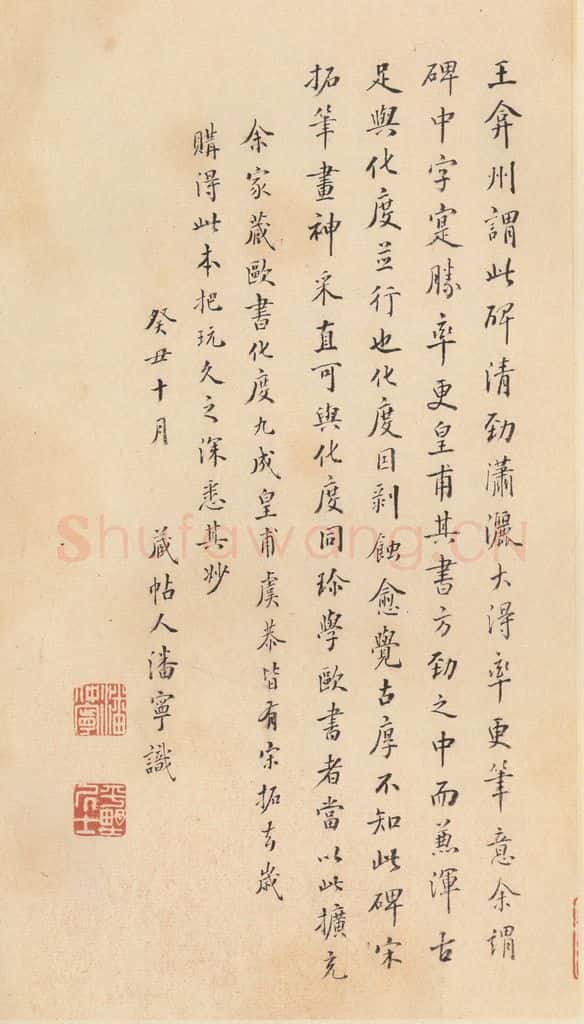 王弇州謂此碑清勁瀟灑大淂率更筆意余謂
碑中字寔勝率更皇甫其書方勁之中而蒹渾古
足與化度並行也化度因剝蝕愈覺古厚不知此碑宋
拓筆畫神采直可與化度同珍學歐書者當以此擴充
余家藏歐書化度九成皇甫虞恭皆有宋拓去歲
購得此本把玩久之深悉其妙
癸丑十月
藏帖人潘寧識
潘寧
Shufawang.CN